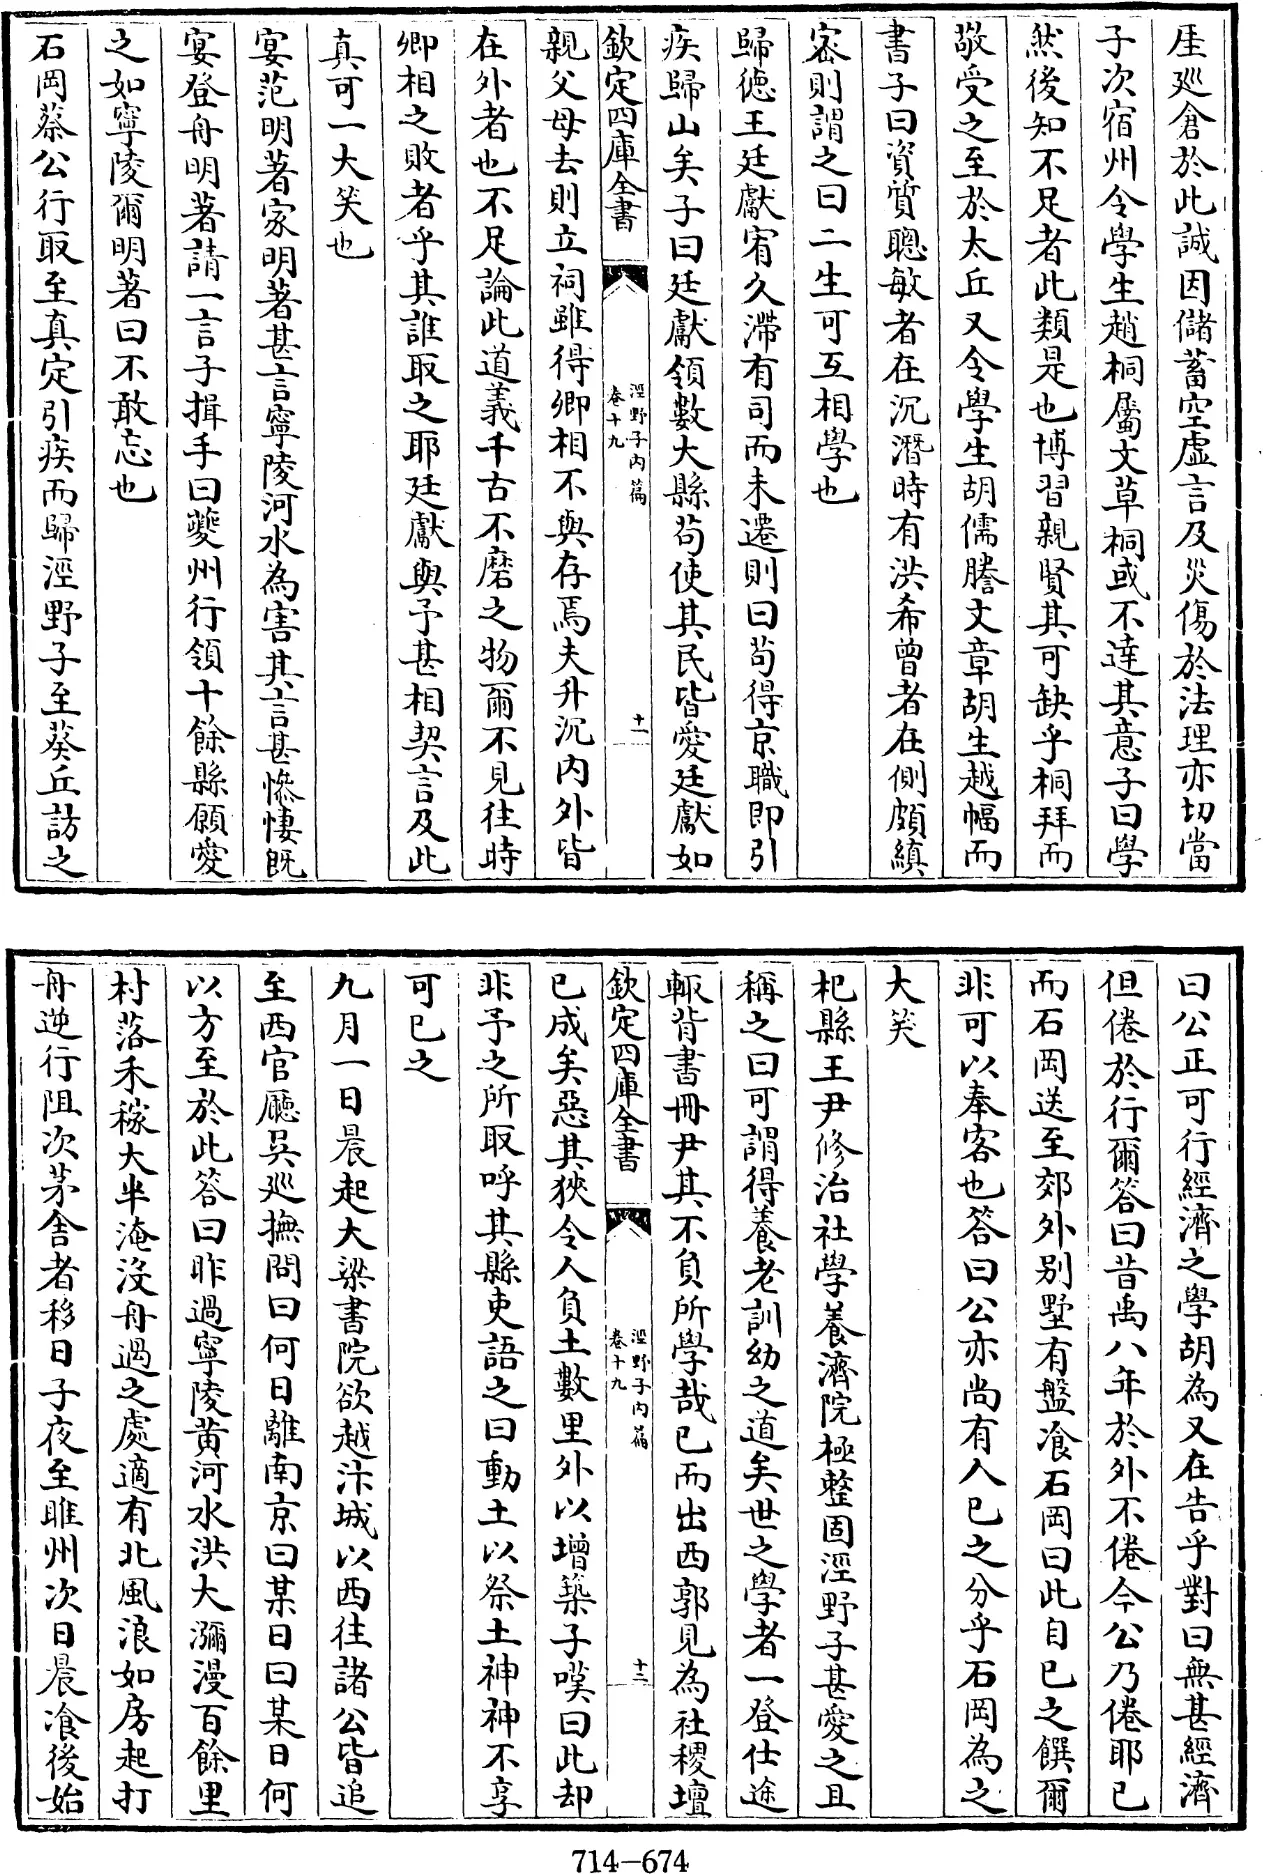 厓巡倉於此誠因儲蓄空虛言及災傷於法理亦切當
子次宿州令學生趙桐屬文草桐或不達其意子曰學
然後知不足者此類是也博習親賢其可缺乎桐拜而
敬受之至於太丘又令學生胡儒謄文章胡生越幅而
書子曰資質聰敏者在沉潛時有洪希曾者在側頗縝
密則謂之曰二生可互相學也
歸德王廷獻宥久滯有司而未遷則曰苟得京職即引
疾歸山矣子曰廷獻領數大縣苟使其民皆愛廷獻如
欽定四庫全書
涇野子內篇
卷十九
十一
親父母去則立祠雖得卿相不與存焉夫升沉內外皆
在外者也不足論此道義千古不磨之物爾不見往時
卿相之敗者乎其誰取之耶廷獻與予甚相契言及此
真可一大笑也
宴范明著家明著甚言寧陵河水為害其言甚慘悽既
宴登舟明著請一言子揖手曰夔州行領十餘縣願愛
之如寧陵爾明著曰不敢忘也
石岡蔡公行取至真定引疾而歸涇野子至葵丘訪之
曰公正可行經濟之學胡為又在告乎對曰無甚經濟
但倦於行爾答曰昔禹八年於外不倦今公乃倦耶已
而石岡送至郊外別墅有盤飡石岡曰此自己之饌爾
非可以奉客也答曰公亦尚有人己之分乎石岡為之
大笑
杞縣王尹修治社學養濟院極整固涇野子甚愛之且
稱之曰可謂得養老訓幼之道矣世之學者一登仕途
輒背書冊尹其不負所學哉已而出西郭見為社稷壇
欽定四庫全書
涇野子內篇
卷十九
十二
已成矣惡其狹令人負土數里外以增築子嘆曰此却
非予之所取呼其縣吏語之曰動土以祭土神神不享
可已之
九月一日晨起大梁書院欲越汴城以西往諸公皆追
至西官廳吳巡撫問曰何日離南京曰某日曰某日何
以方至於此答曰昨過寧陵黃河水洪大瀰漫百餘里
村落禾稼大半淹沒舟過之處適有北風浪如房起打
舟逆行阻次茅舍者移日子夜至睢州次日晨飡後始
714-674